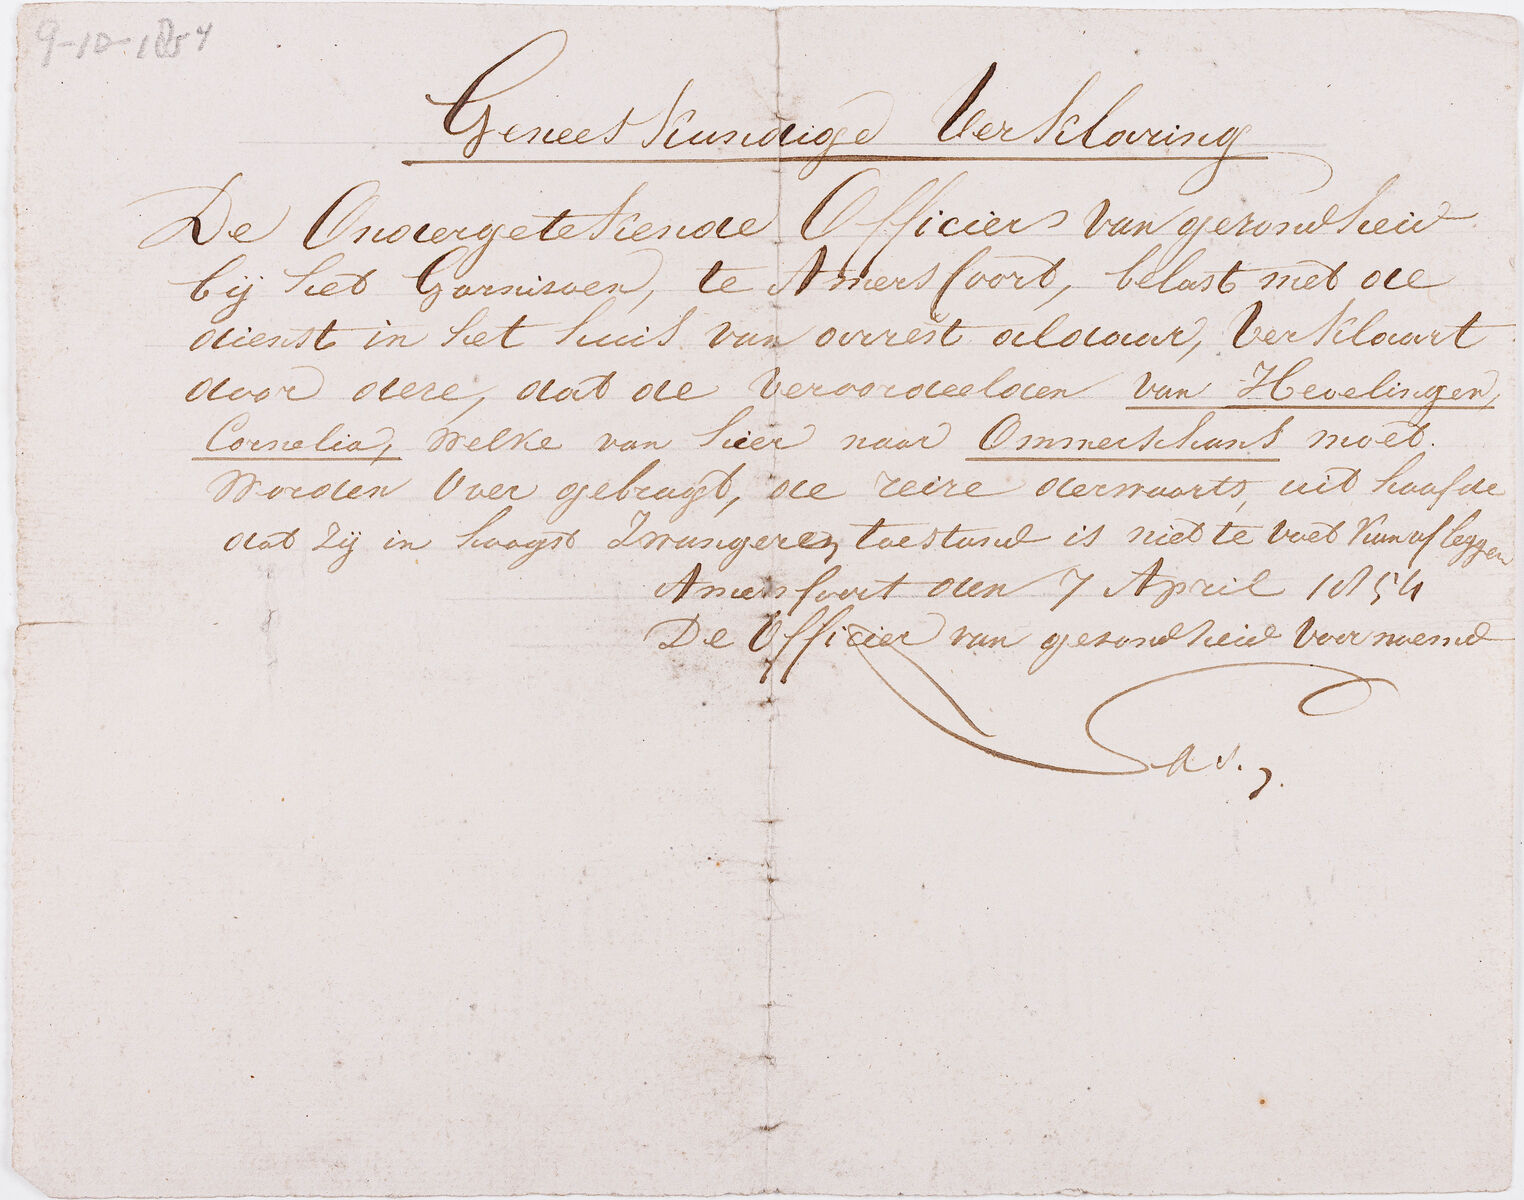 9-10-1854
Geneeskundige Verklaring
De Ondergetekende Officiers van gezondheid
bij het Garnisoen, te Amersfoort, belast met de
dienst in het huis van arrest aldaar, Verklaart
door deze, dat de Veroordeelden van Hevelingen,
Cornelia, Welke van hier naar Ommerschans moet
Worden Over gebragt, de reize derwaarts, uit hoofde
dat Zij in hoogst Zwangeren toestand is niet te voet kan afleggen
Amersfoort den 7 April 1854
De Officier van gezondheid Voornoemd